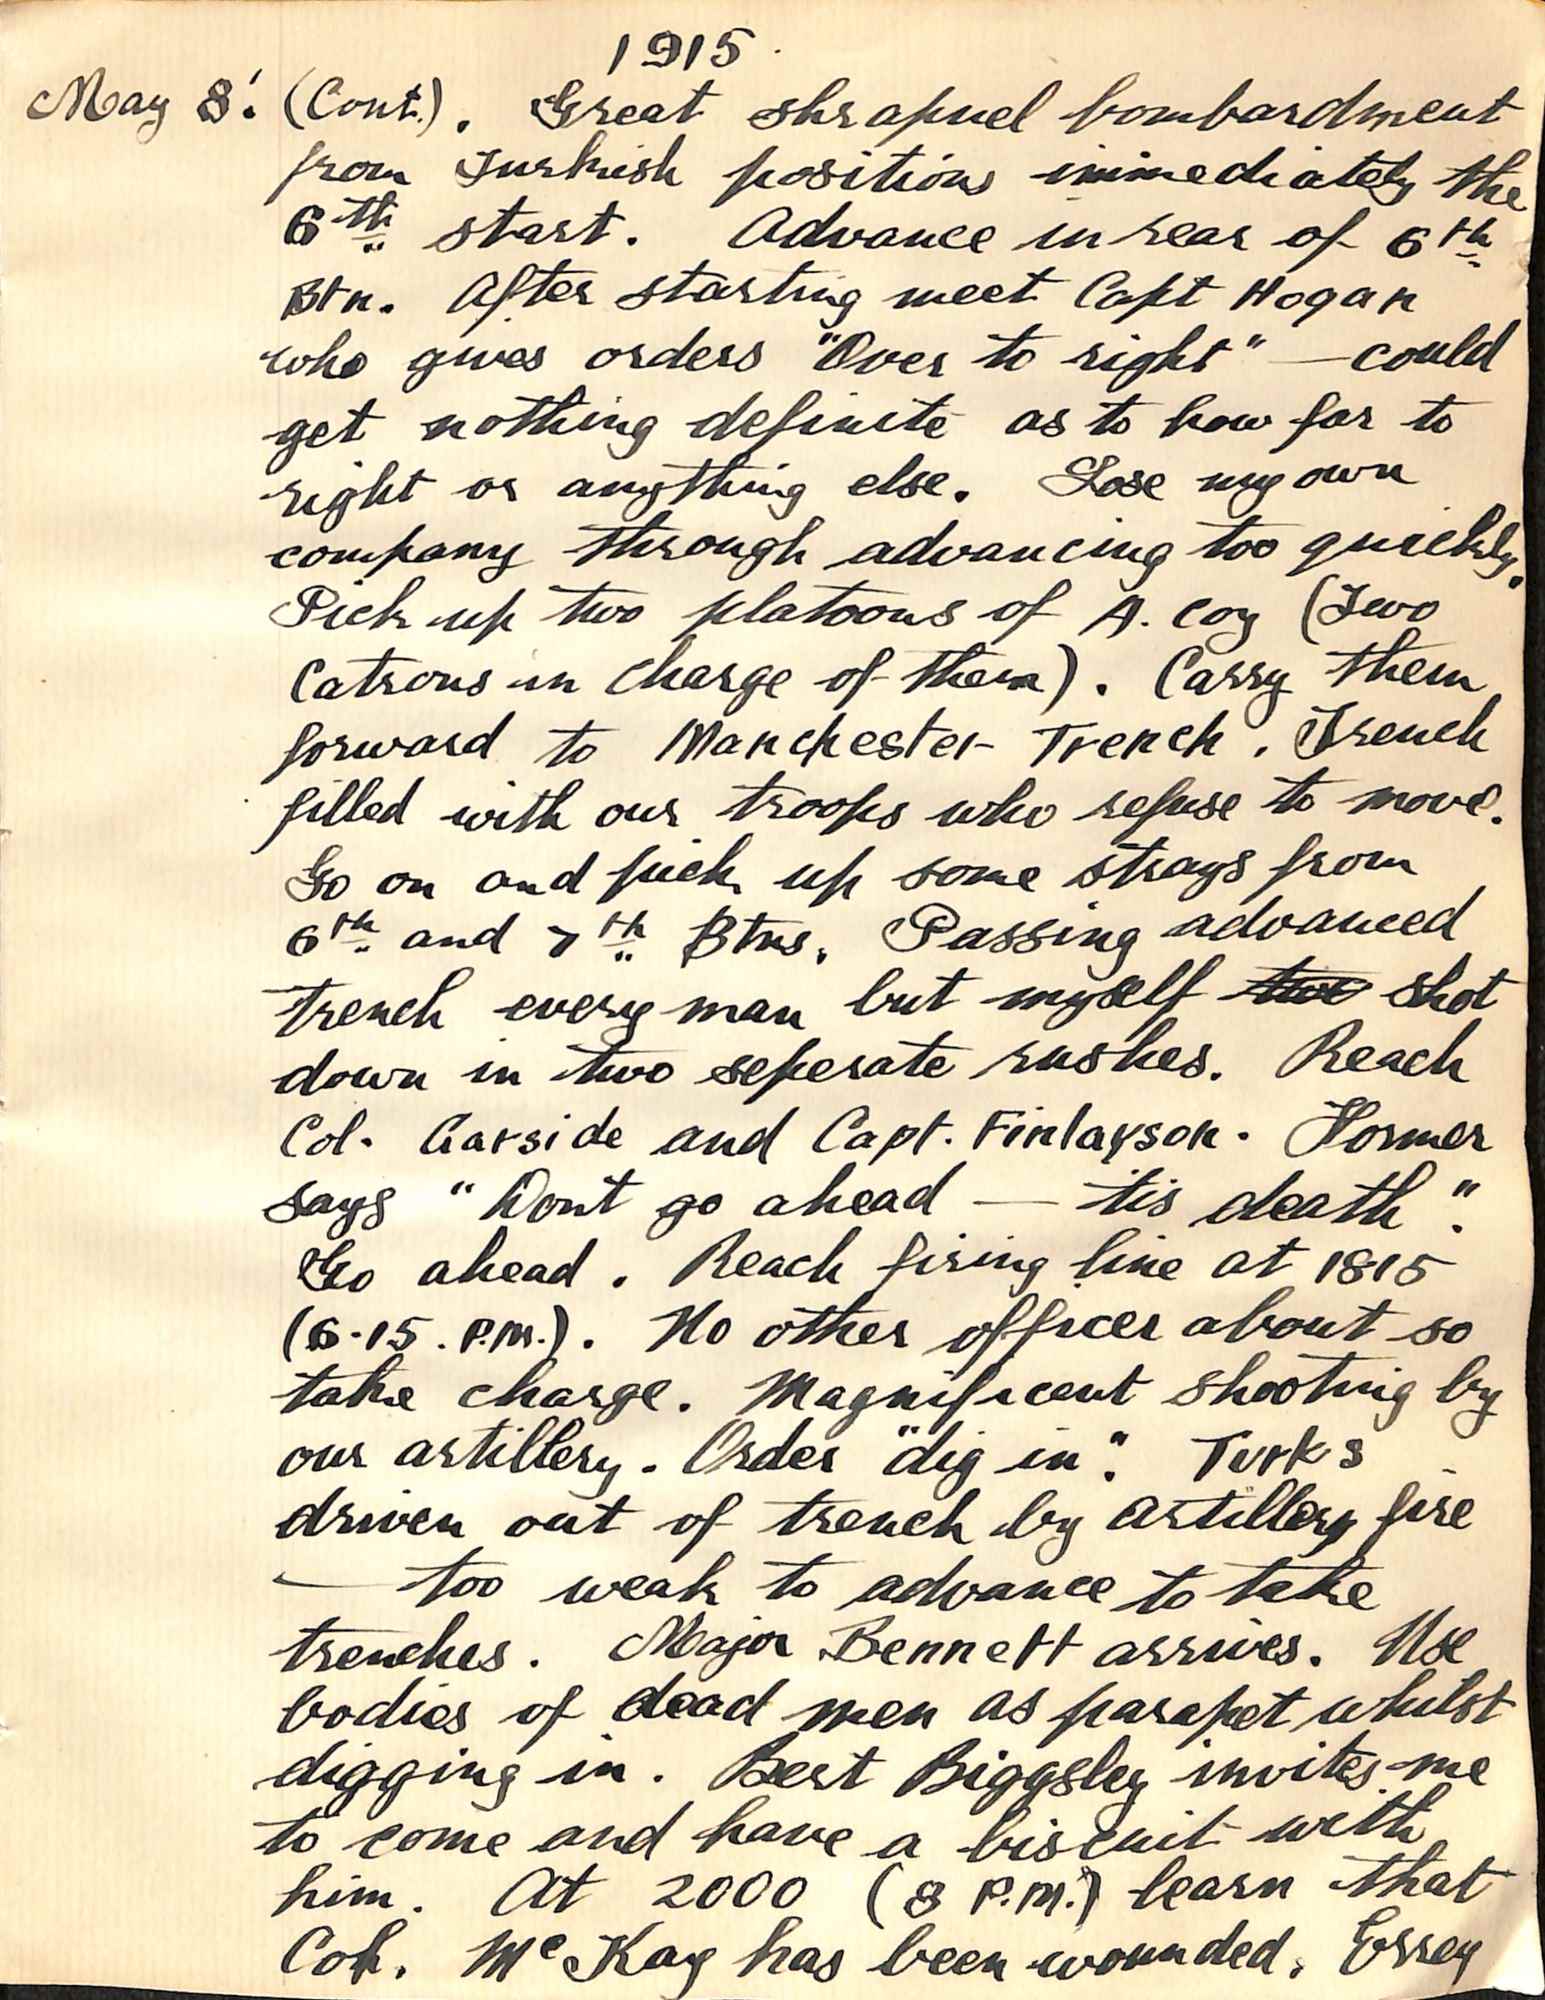 1915.
May 8. (Cont.). Great shrapnel bombardment
from Turkish positions immediately the
6th start. Advance in rear of 6th
Btn. After starting meet Capt Hogan
who gives orders "Over to right" — could
get nothing definite as to how far to
right or anything else. Lose my own
company through advancing too quickly.
Pick up two platoons of A. Coy (Two
Catrons in charge of them). Carry them
forward to Manchester Trench. Trench
filled with our troops who refuse to move.
Go on and pick up some strays from
6th and 7th Btns. Passing advanced
trench every man but myself two shot
down in two seperate rushes. Reach
Col. Garside and Capt. Finlayson. Former
says "Dont go ahead — tis death".
Go ahead. Reach firing line at 1815
(6.15. P.M.). No other officer about so
take charge. Magnificent shooting by
our artillery. Order "dig in". Turks
driven out of trench by artillery fire
— too weak to advance to take
trenches. Major Bennett arrives. Use
bodies of dead men as parapet whilst
digging in. Bert Biggsley invites me
to come and have a biscuit with
him. At 2000 (8 P.M.) learn that
Col. McKay has been wounded.